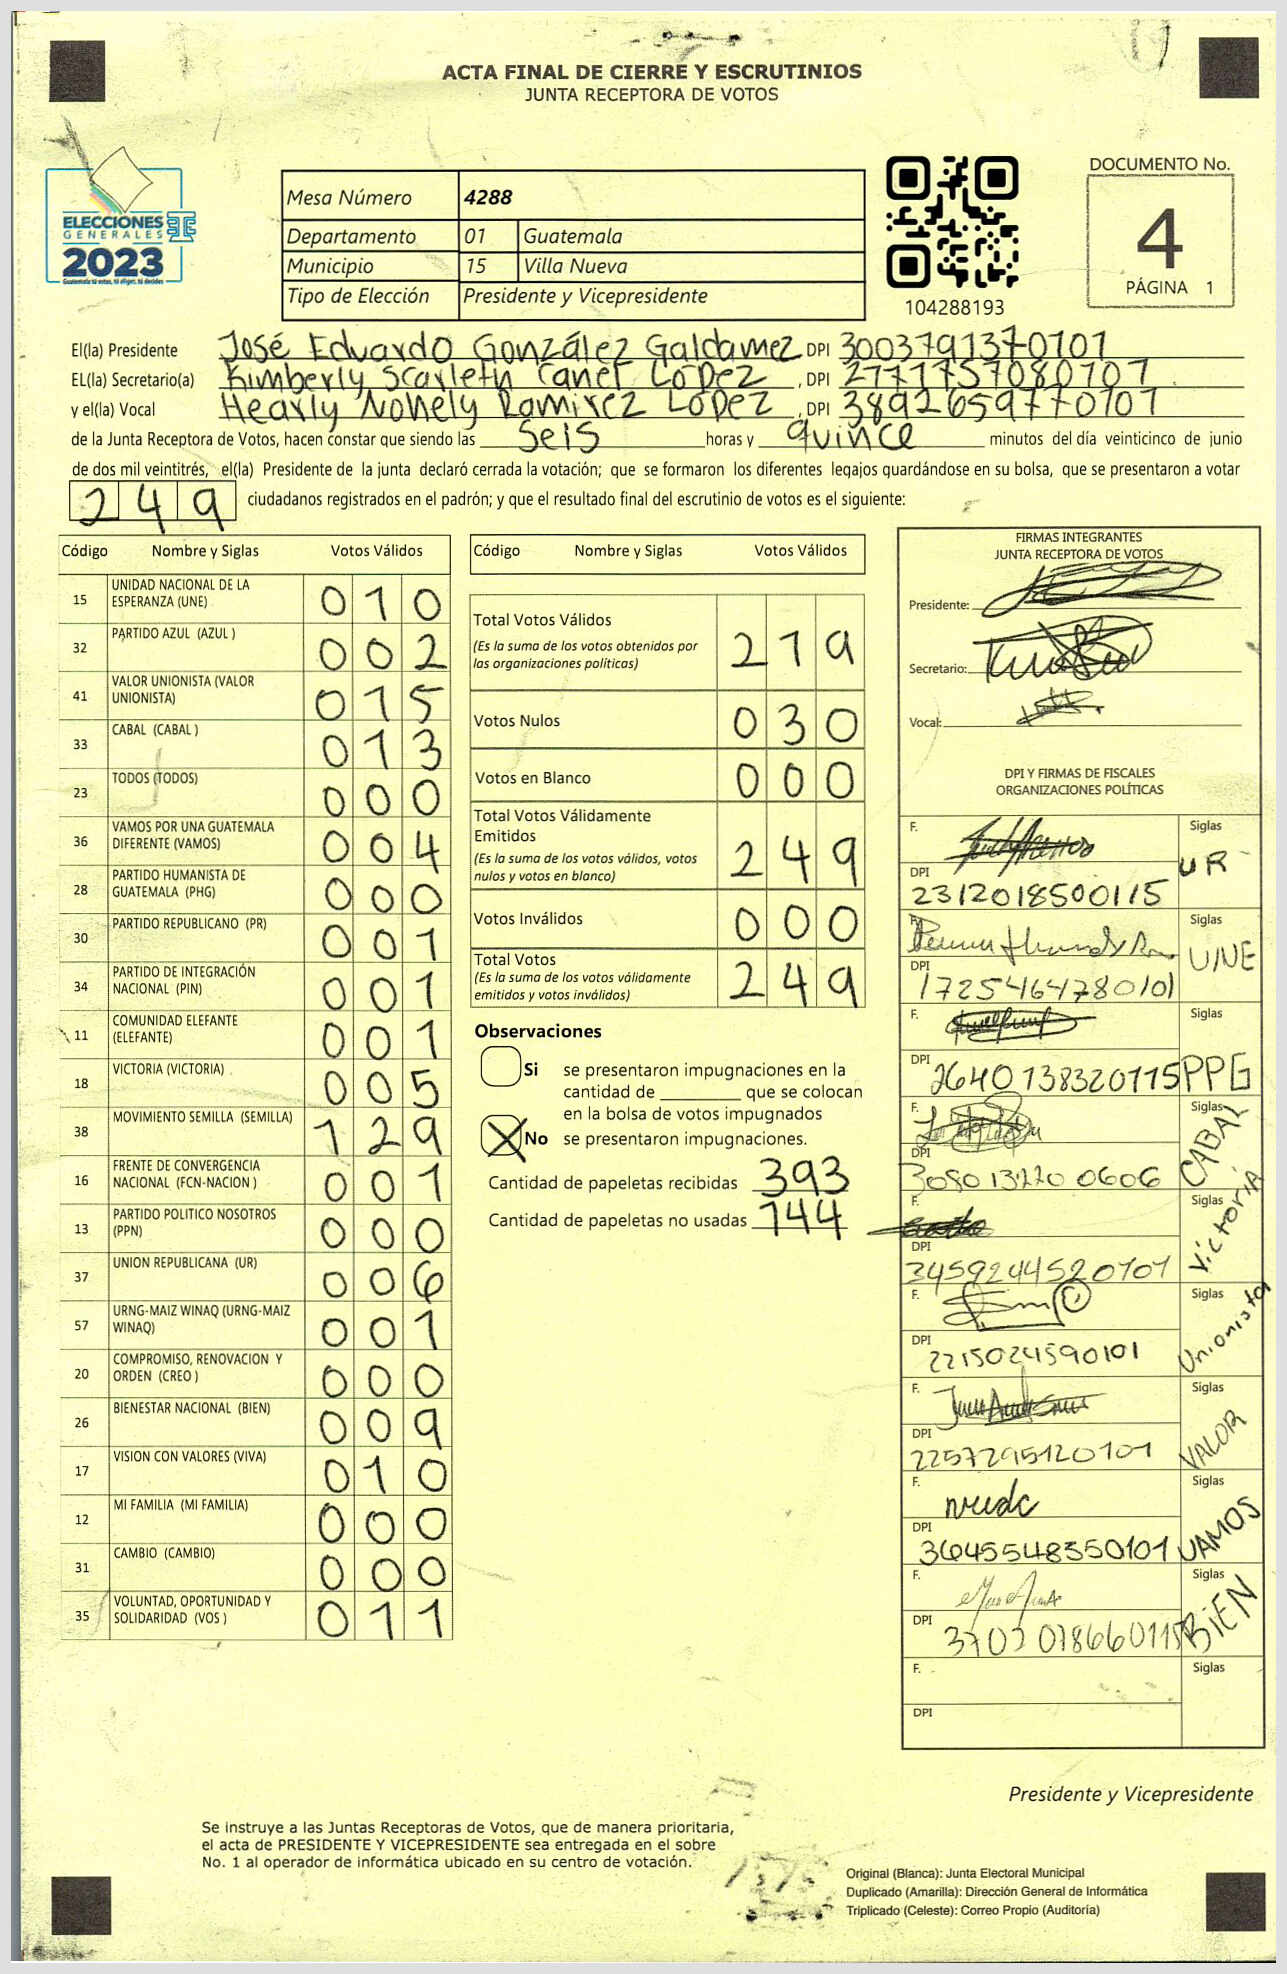 ACTA FINAL DE CIERRE Y ESCRUTINIOS
JUNTA RECEPTORA DE VOTOS
ELECCIONES
GENERALES
2023
Guatemala tú votas, tú eliges, tú decides
Mesa Número 4288
Departamento 01 Guatemala
Municipio 15 Villa Nueva
Tipo de Elección Presidente y Vicepresidente
104288193
DOCUMENTO No.
4
PÁGINA 1
El(la) Presidente José Eduardo González Galdamez DPI 3003791370101
EL(la) Secretario(a) Kimberly Scarleth Canel López, DPI 2777757080101
y el(la) Vocal Hearly Nohely Ramirez López, DPI 3892659770101
de la Junta Receptora de Votos, hacen constar que siendo las seis horas y quince minutos del día veinticinco de junio
de dos mil veintitrés, el(la) Presidente de la junta declaró cerrada la votación; que se formaron los diferentes legajos guardándose en su bolsa, que se presentaron a votar
249 ciudadanos registrados en el padrón; y que el resultado final del escrutinio de votos es el siguiente:
Código Nombre y Siglas Votos Válidos
15 UNIDAD NACIONAL DE LA
ESPERANZA (UNE) 010
32 PARTIDO AZUL (AZUL ) 002
41 VALOR UNIONISTA (VALOR
UNIONISTA) 015
33 CABAL (CABAL ) 013
23 TODOS (TODOS) 000
36 VAMOS POR UNA GUATEMALA
DIFERENTE (VAMOS) 004
28 PARTIDO HUMANISTA DE
GUATEMALA (PHG) 000
30 PARTIDO REPUBLICANO (PR) 001
34 PARTIDO DE INTEGRACIÓN
NACIONAL (PIN) 001
11 COMUNIDAD ELEFANTE
(ELEFANTE) 001
18 VICTORIA (VICTORIA) 005
38 MOVIMIENTO SEMILLA (SEMILLA) 129
16 FRENTE DE CONVERGENCIA
NACIONAL (FCN-NACION ) 001
13 PARTIDO POLITICO NOSOTROS
(PPN) 000
37 UNION REPUBLICANA (UR) 006
57 URNG-MAIZ WINAQ (URNG-MAIZ
WINAQ) 001
20 COMPROMISO, RENOVACION Y
ORDEN (CREO ) 000
26 BIENESTAR NACIONAL (BIEN) 009
17 VISION CON VALORES (VIVA) 010
12 MI FAMILIA (MI FAMILIA) 000
31 CAMBIO (CAMBIO) 000
35 VOLUNTAD, OPORTUNIDAD Y
SOLIDARIDAD (VOS ) 011
Código Nombre y Siglas Votos Válidos
Total Votos Válidos 219
(Es la suma de los votos obtenidos por
las organizaciones políticas)
Votos Nulos 030
Votos en Blanco 000
Total Votos Válidamente
Emitidos 249
(Es la suma de los votos válidos, votos
nulos y votos en blanco)
Votos Inválidos 000
Total Votos 249
(Es la suma de los votos válidamente
emitidos y votos inválidos)
Observaciones
Si se presentaron impugnaciones en la
cantidad de ________ que se colocan
en la bolsa de votos impugnados
X No se presentaron impugnaciones.
Cantidad de papeletas recibidas 393
Cantidad de papeletas no usadas 144
FIRMAS INTEGRANTES
JUNTA RECEPTORA DE VOTOS
Presidente:
Secretario:
Vocal:
DPI Y FIRMAS DE FISCALES
ORGANIZACIONES POLÍTICAS
F. Siglas
UR
DPI
2312018500115
F. Siglas
UNE
DPI
1725464780101
F. Siglas
DPI 2640138320115 PPG
F. Siglas
CABAL
DPI
3080132200606
F. Siglas
Victoria
DPI
3459244520101
F. Siglas
Unionista
DPI
2215024590101
F. Siglas
VALOR
DPI
2257295120101
F. Siglas
VAMOS
DPI
3645548550101
F. Siglas
BIEN
DPI
3707078660115
F. Siglas
DPI
Presidente y Vicepresidente
Se instruye a las Juntas Receptoras de Votos, que de manera prioritaria,
el acta de PRESIDENTE Y VICEPRESIDENTE sea entregada en el sobre
No. 1 al operador de informática ubicado en su centro de votación.
Original (Blanca): Junta Electoral Municipal
Duplicado (Amarilla): Dirección General de Informática
Triplicado (Celeste): Correo Propio (Auditoría)